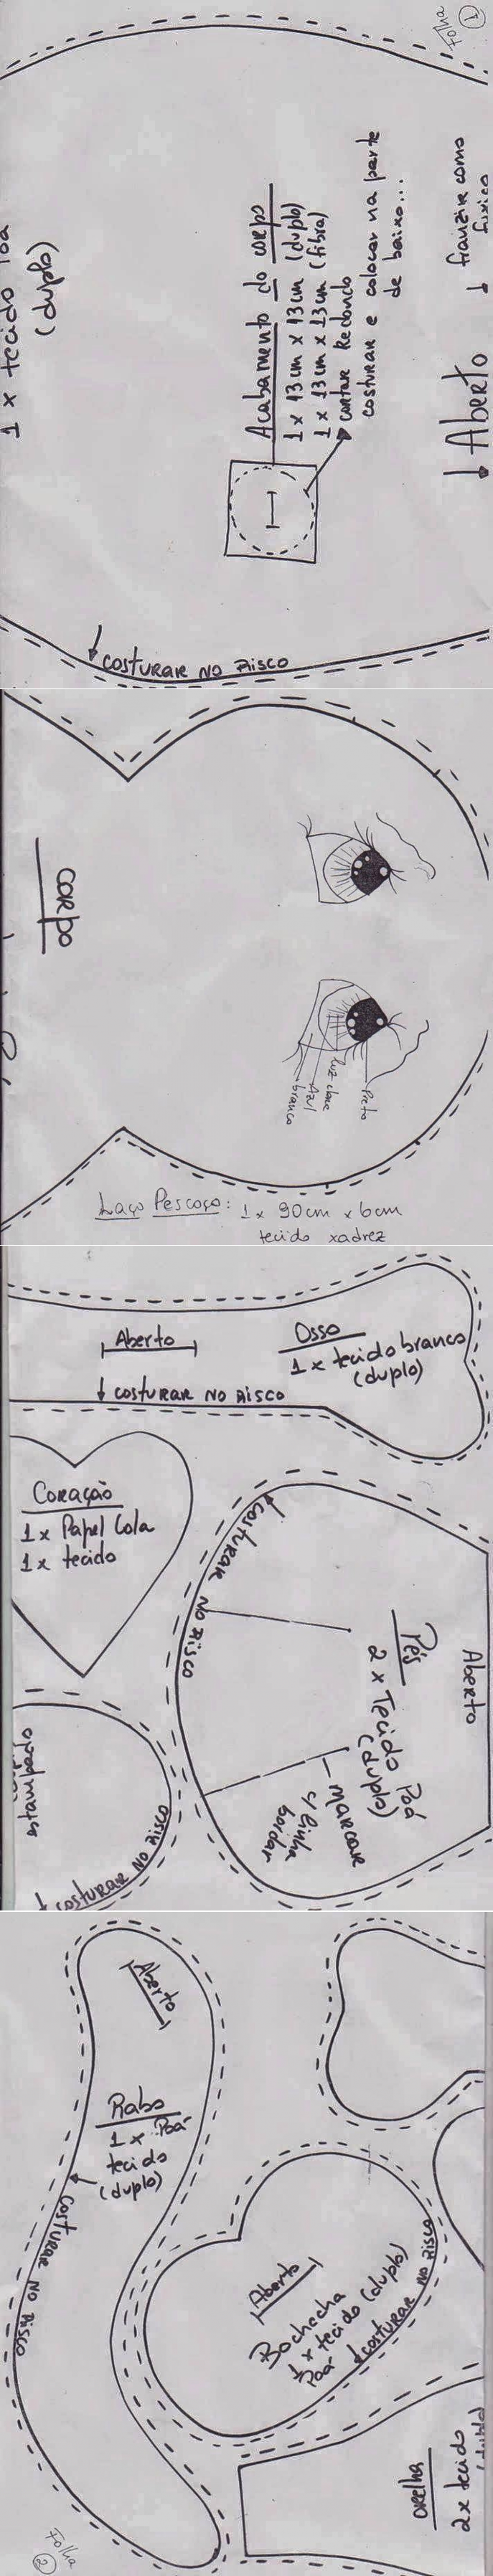 Folha
1
1 x tecido
(duplo)
Acabamento do corpo
1 x 13cm x 13cm (duplo)
1 x 13cm x 13cm (fibra)
cortar Redondo
costurar e colocar na parte
de baixo...
Aberto
franzir como
fuxico
costurar no risco
corpo
Preto
luz clara
Azul
branco
Laço Pescoço: 1x 90cm x 6cm
tecido xadrez
Aberto
Osso
1 x tecido branco
(duplo)
costurar no risco
Coração
1 x Papel Cola
1 x tecido
costurar no risco
Pés
2 x Tecido Poá
(duplo)
Aberto
marcar
c/ linha
bordar
estampado
costurar no risco
Aberto
Rabo
1 x Poá
tecido
(duplo)
costurar no risco
Aberto
Bochecha
1 x tecido (duplo)
Poá
costurar no risco
orelha
2x tecido
Folha
2